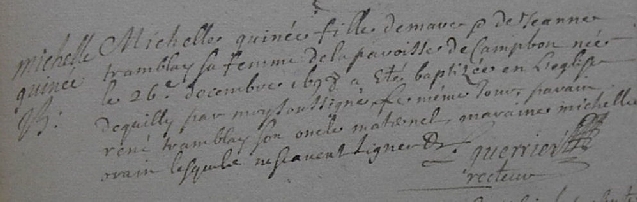 michelle
quinée
B:
Michelle quinée fille de marc & de Jeanne
tramblay sa femme de la paroisse de Campbon née
le 26e decembre 1698 a Eté baptizée en L'eglise
dequilly par moy soussigné le même Jour, parain
rené tramblay son oncle maternel maraine michelle
orain lesquels ne scavent signer
guerrier
recteur